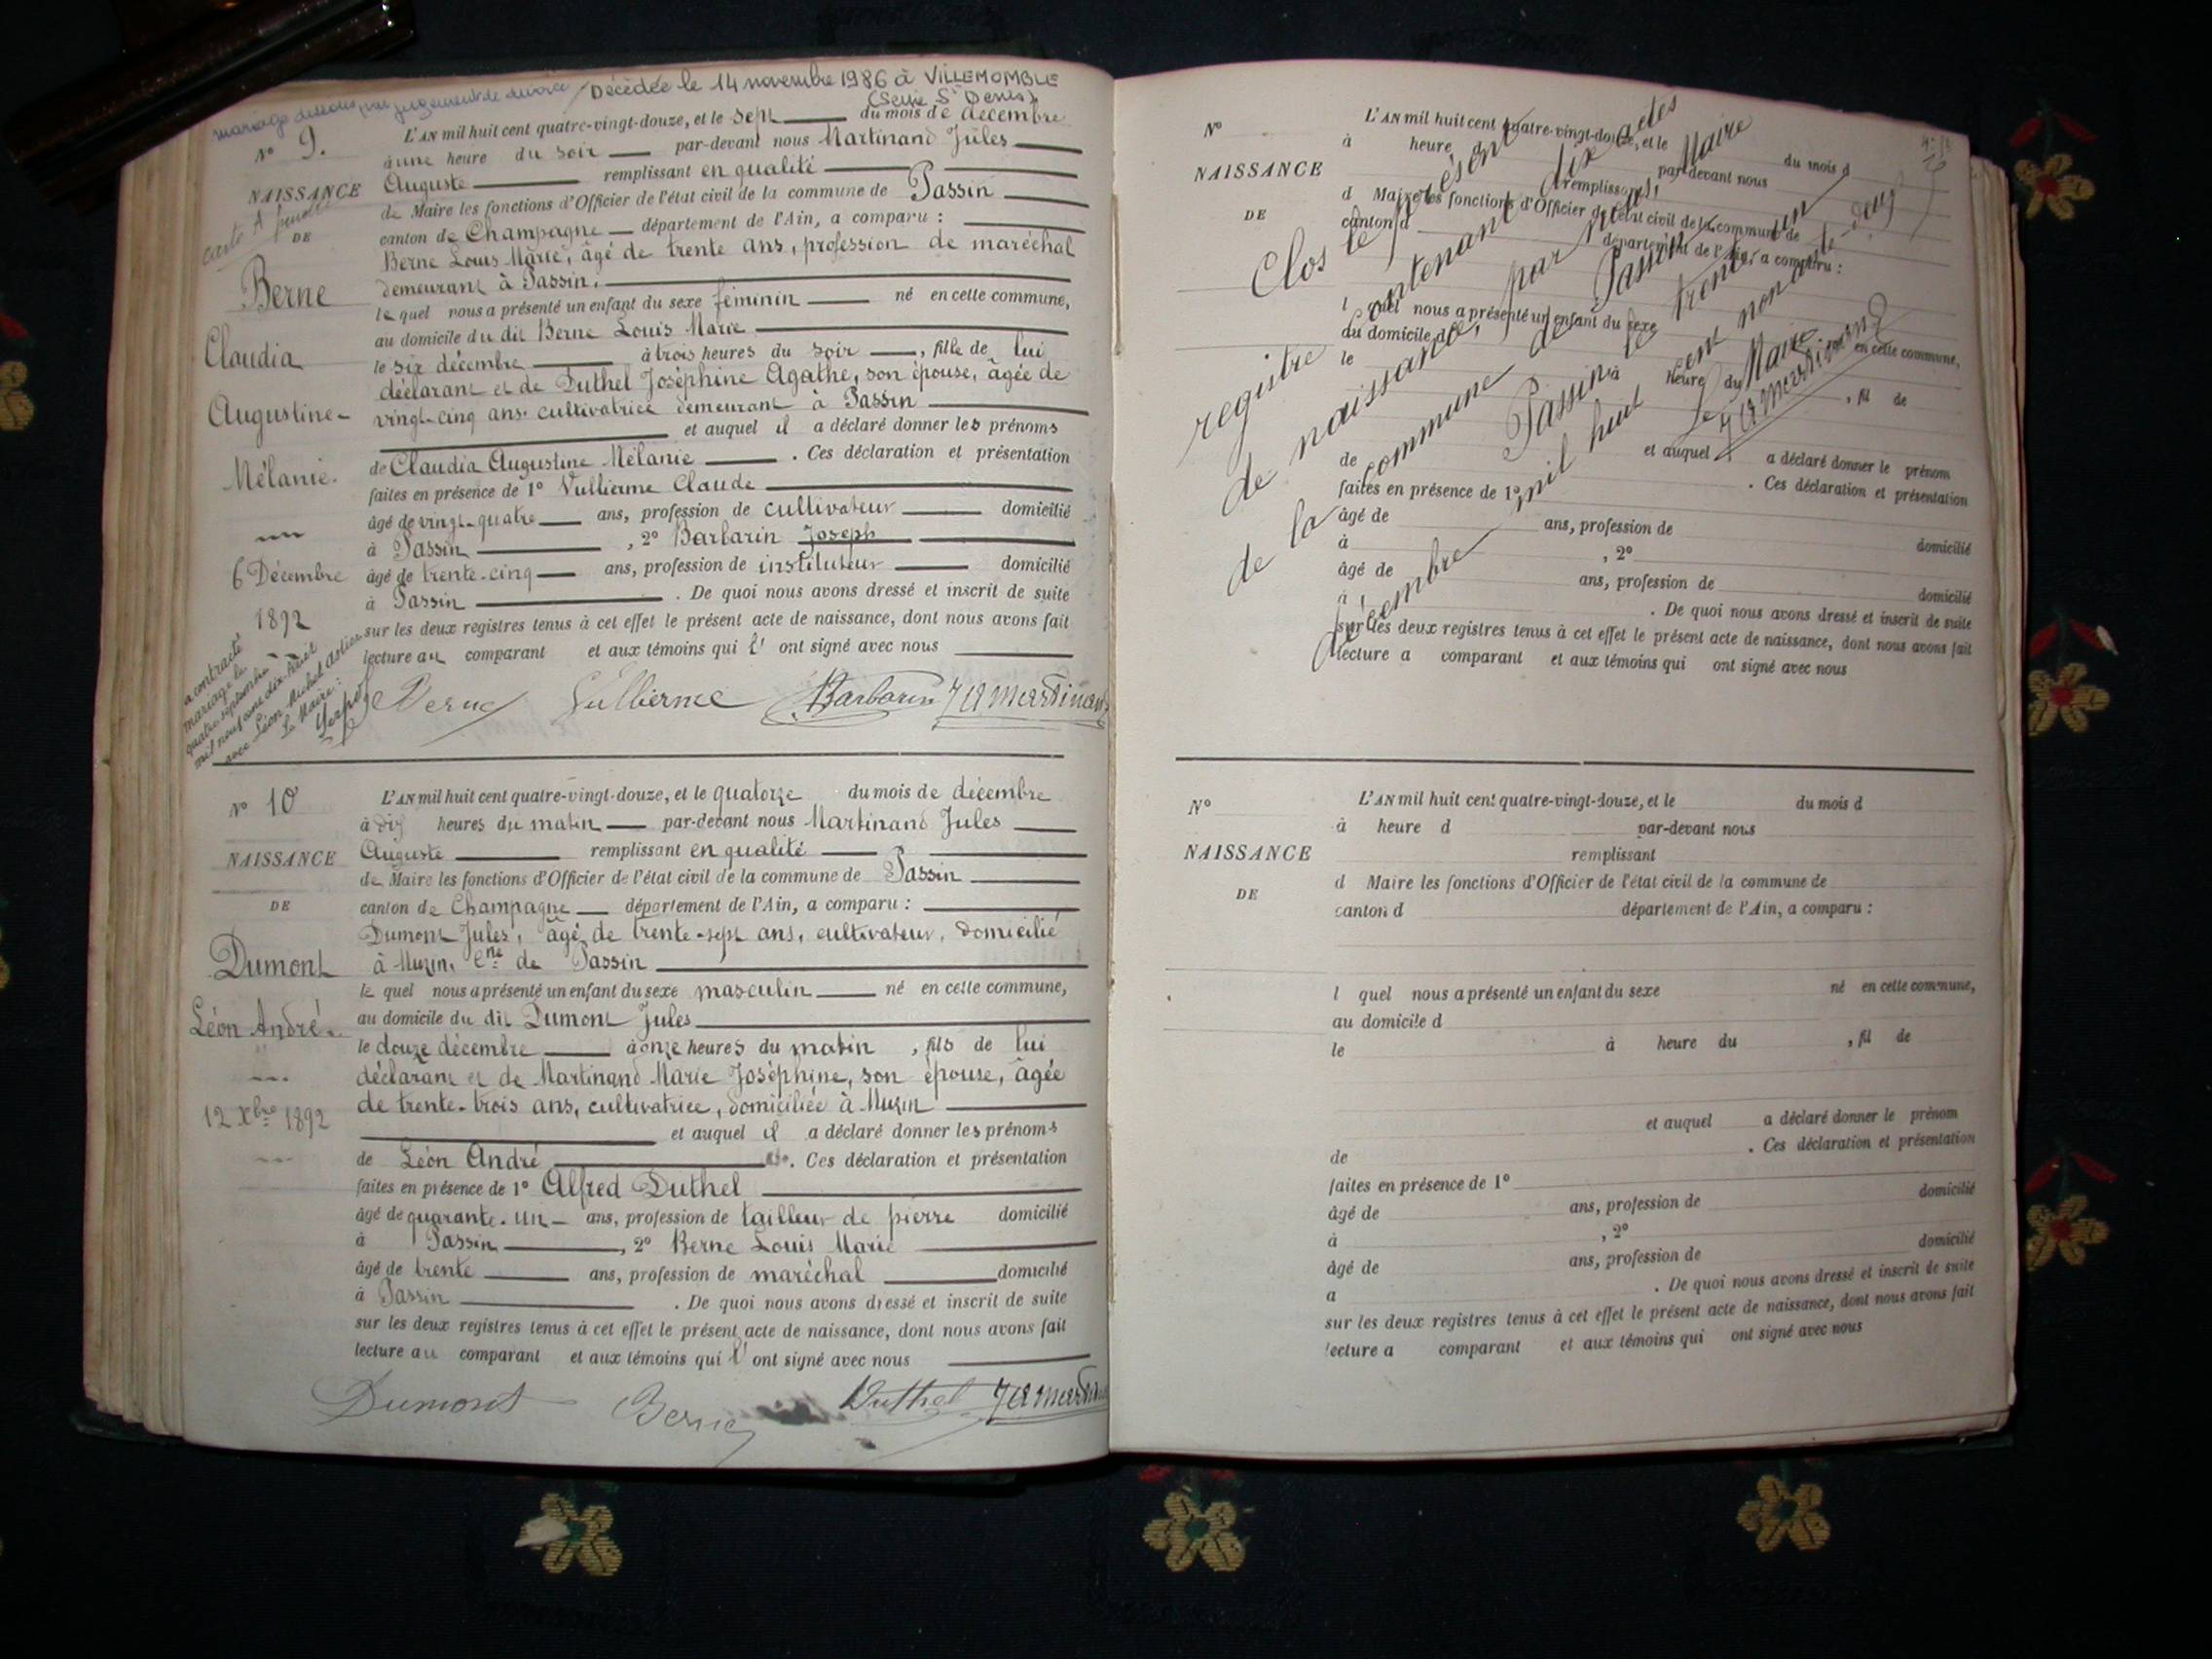 mariage dissous par jugement de divorce / Décédée le 14 novembre 1986 à VILLEMOMBLE
(Seine St Denis)
N° 9.
NAISSANCE
DE
Berne
Claudia
Augustine-
Mélanie.
6 Décembre
1892
a contracté
mariage le
quatre septembre
mil neuf cent dix-huit
avec Léon Michel
Le Maire:
L'AN mil huit cent quatre-vingt-douze, et le sept du mois de décembre
à une heure du soir par-devant nous Martinand Jules
Auguste remplissant en qualité
de Maire les fonctions d'Officier de l'état civil de la commune de Passin
canton de Champagne département de l'Ain, a comparu :
Berne Louis Marie, âgé de trente ans, profession de maréchal
demeurant à Passin.
le quel nous a présenté un enfant du sexe féminin né en cette commune,
au domicile du dit Berne Louis Marie
le six décembre à trois heures du soir , fille de lui
déclarant et de Duthel Joséphine Agathe, son épouse, âgée de
vingt-cinq ans. cultivatrice demeurant à Passin
et auquel il a déclaré donner les prénoms
de Claudia Augustine Mélanie . Ces déclaration et présentation
faites en présence de 1° Vullierme Claude
âgé de vingt-quatre ans, profession de cultivateur domicilié
à Passin , 2° Barbarin Joseph
âgé de trente-cinq ans, profession de instituteur domicilié
à Passin . De quoi nous avons dressé et inscrit de suite
sur les deux registres tenus à cet effet le présent acte de naissance, dont nous avons fait
lecture au comparant et aux témoins qui l' ont signé avec nous
Berne Vullierme Barbarin JAMartinand
N° 10
NAISSANCE
DE
Dumont
Léon André.
12 Xbre 1892
L'AN mil huit cent quatre-vingt-douze, et le quatorze du mois de décembre
à dix heures du matin par-devant nous Martinand Jules
Auguste remplissant en qualité
de Maire les fonctions d'Officier de l'état civil de la commune de Passin
canton de Champagne département de l'Ain, a comparu :
Dumont Jules, âgé de trente-sept ans, cultivateur, domicilié
à Muzin, Cne de Passin
le quel nous a présenté un enfant du sexe masculin né en cette commune,
au domicile du dit Dumont Jules
le douze décembre à onze heures du matin , fils de lui
déclarant et de Martinand Marie Joséphine, son épouse, âgée
de trente-trois ans, cultivatrice, domiciliée à Muzin
et auquel il a déclaré donner les prénoms
de Léon André . Ces déclaration et présentation
faites en présence de 1° Alfred Duthel
âgé de quarante-un ans, profession de tailleur de pierre domicilié
à Passin , 2° Berne Louis Marie
âgé de trente ans, profession de maréchal domicilié
à Passin . De quoi nous avons dressé et inscrit de suite
sur les deux registres tenus à cet effet le présent acte de naissance, dont nous avons fait
lecture au comparant et aux témoins qui l' ont signé avec nous
Dumont Berne Duthel JAMartinand
N°
NAISSANCE
DE
L'AN mil huit cent quatre-vingt-douze, et le du mois d
à heure d par-devant nous
remplissant
d Maire les fonctions d'Officier de l'état civil de la commune de
canton d département de l'Ain, a comparu :
l quel nous a présenté un enfant du sexe
en cette commune,
au domicile d
le à heure du , fil de
et auquel a déclaré donner le prénom
de . Ces déclaration et présentation
faites en présence de 1°
âgé de ans, profession de
à , 2° domicilié
âgé de ans, profession de
à domicilié
. De quoi nous avons dressé et inscrit de suite
sur les deux registres tenus à cet effet le présent acte de naissance, dont nous avons fait
lecture a comparant et aux témoins qui ont signé avec nous
Clos le présent
registre contenant dix actes
de naissance, par nous, Maire
de la commune de Passin
Passin le trente un
décembre mil huit cent nonante-deux
Le Maire
JAMartinand
N°
NAISSANCE
DE
L'AN mil huit cent quatre-vingt-douze, et le du mois d
à heure d par-devant nous
remplissant
d Maire les fonctions d'Officier de l'état civil de la commune de
canton d département de l'Ain, a comparu :
l quel nous a présenté un enfant du sexe né en cette commune,
au domicile d
le à heure du , fil de
et auquel a déclaré donner le prénom
de . Ces déclaration et présentation
faites en présence de 1°
âgé de ans, profession de domicilié
à , 2°
âgé de ans, profession de domicilié
a . De quoi nous avons dressé et inscrit de suite
sur les deux registres tenus à cet effet le présent acte de naissance, dont nous avons fait
lecture a comparant et aux témoins qui ont signé avec nous